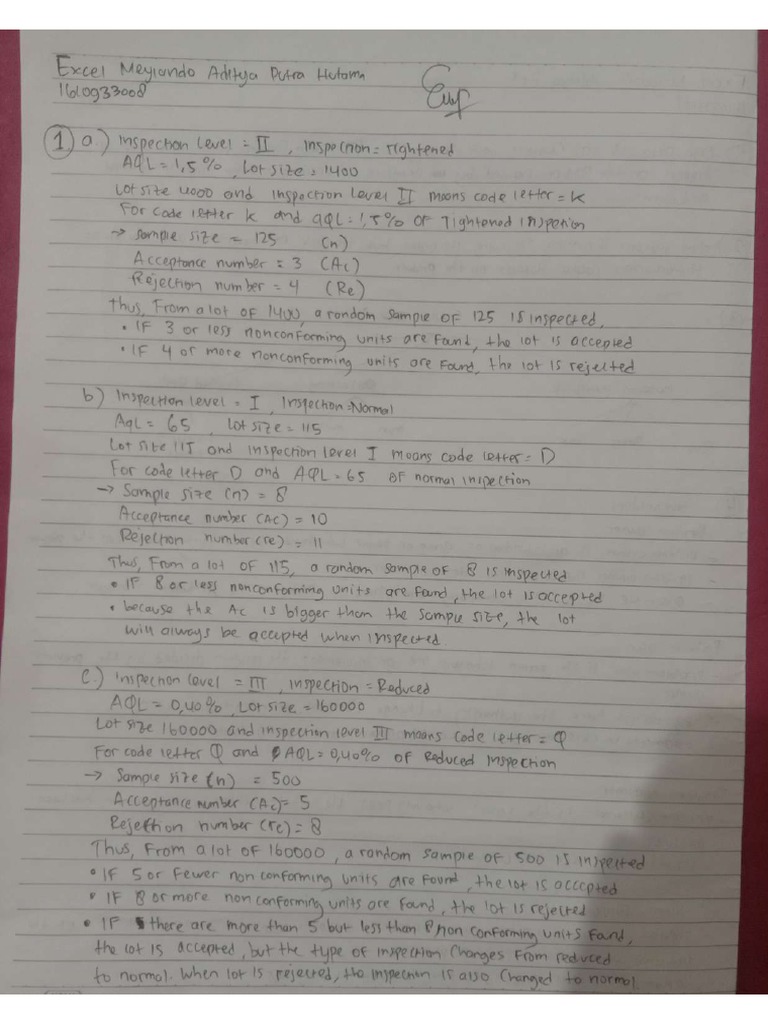 Excel Meyiando Aditya Putra Hutama
160933008
1 a.) Inspection Level = II , Inspection = Tightened
AQL = 1,5 % , Lot size = 1400
Lot size 4000 and inspection level II means code letter = K
For code letter K and AQL = 1,5% OF Tightened Inspetion
→ Sample size = 125 (n)
Acceptance number = 3 (Ac)
Rejection number = 4 (Re)
Thus, From a lot of 1400, a random sample of 125 is inspected,
• IF 3 or less nonconforming units are found, the lot is accepted
• IF 4 or more nonconforming units are found, the lot is rejected
b) Inspection level = I , Inspection = Normal
AQL = 65 , Lot size = 115
Lot size 115 and inspection level I means code letter = D
For code letter D and AQL = 65 OF normal inspection
→ Sample size (n) = 8
Acceptance number (Ac) = 10
Rejection number (re) = 11
Thus, From a lot of 115, a random sample of 8 is inspected
• IF 8 or less nonconforming units are found, the lot is accepted
• because the Ac is bigger than the sample size, the lot
will always be accepted when inspected
C.) Inspection level = III , inspection = Reduced
AQL = 0,40% , Lot size = 160000
Lot size 160000 and inspection level III means code letter = Q
For code letter Q and AQL = 0,40% of Reduced Inspection
→ Sample size (n) = 500
Acceptance number (Ac) = 5
Rejection number (re) = 8
Thus, From a lot of 160000, a random sample of 500 is inspected
• IF 5 or Fewer non conforming units are found, the lot is accepted
• IF 8 or more non conforming units are found, the lot is rejected
• IF there are more than 5 but less than 8 non conforming units found,
the lot is accepted, but the type of inspection changes from reduced
to normal. When lot is rejected, the inspection is also changed to normal.